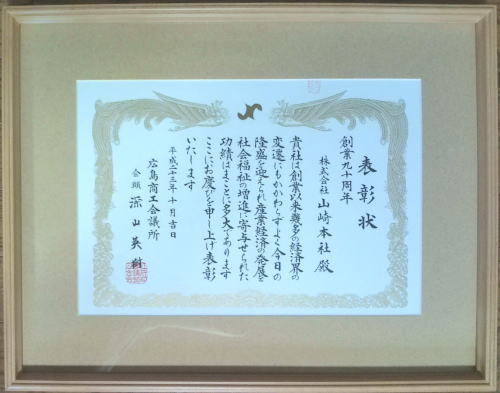 表彰状
創業九十周年
株式会社 山崎本社 殿
貴社は創業以来幾多の経済界の
変遷にもかかわらずよく今日の
隆盛を迎えられ産業経済の発展と
社会福祉の増進に寄与せられた
功績はまことに多大であります
ここにお慶びを申し上げ表彰
いたします
平成二十三年十月吉日
広島商工会議所
会頭 深山英樹